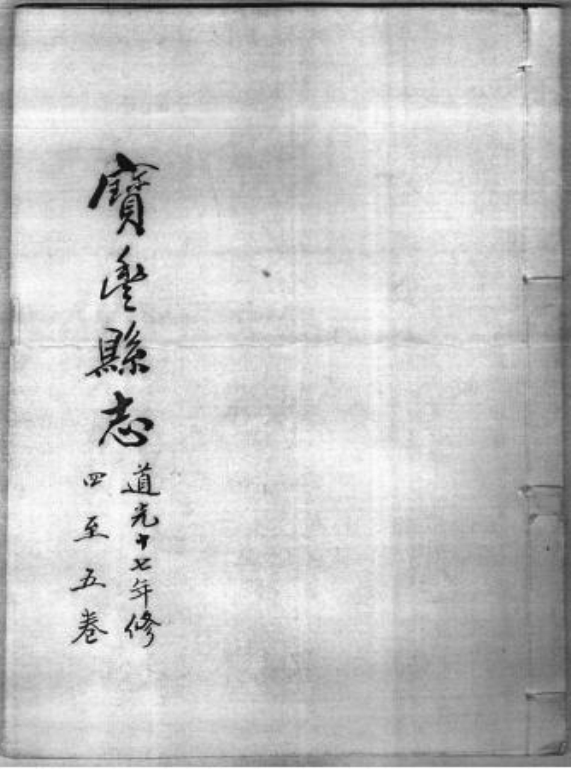 寶豐縣志
道光十七年修
四至五卷